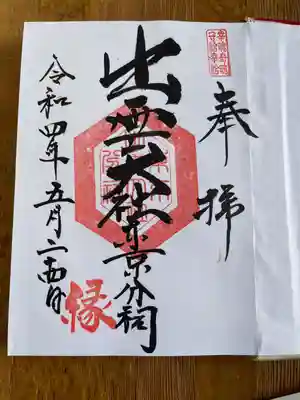 奉拝
出雲大社東京分祠
令和四年五月二十四日
縁